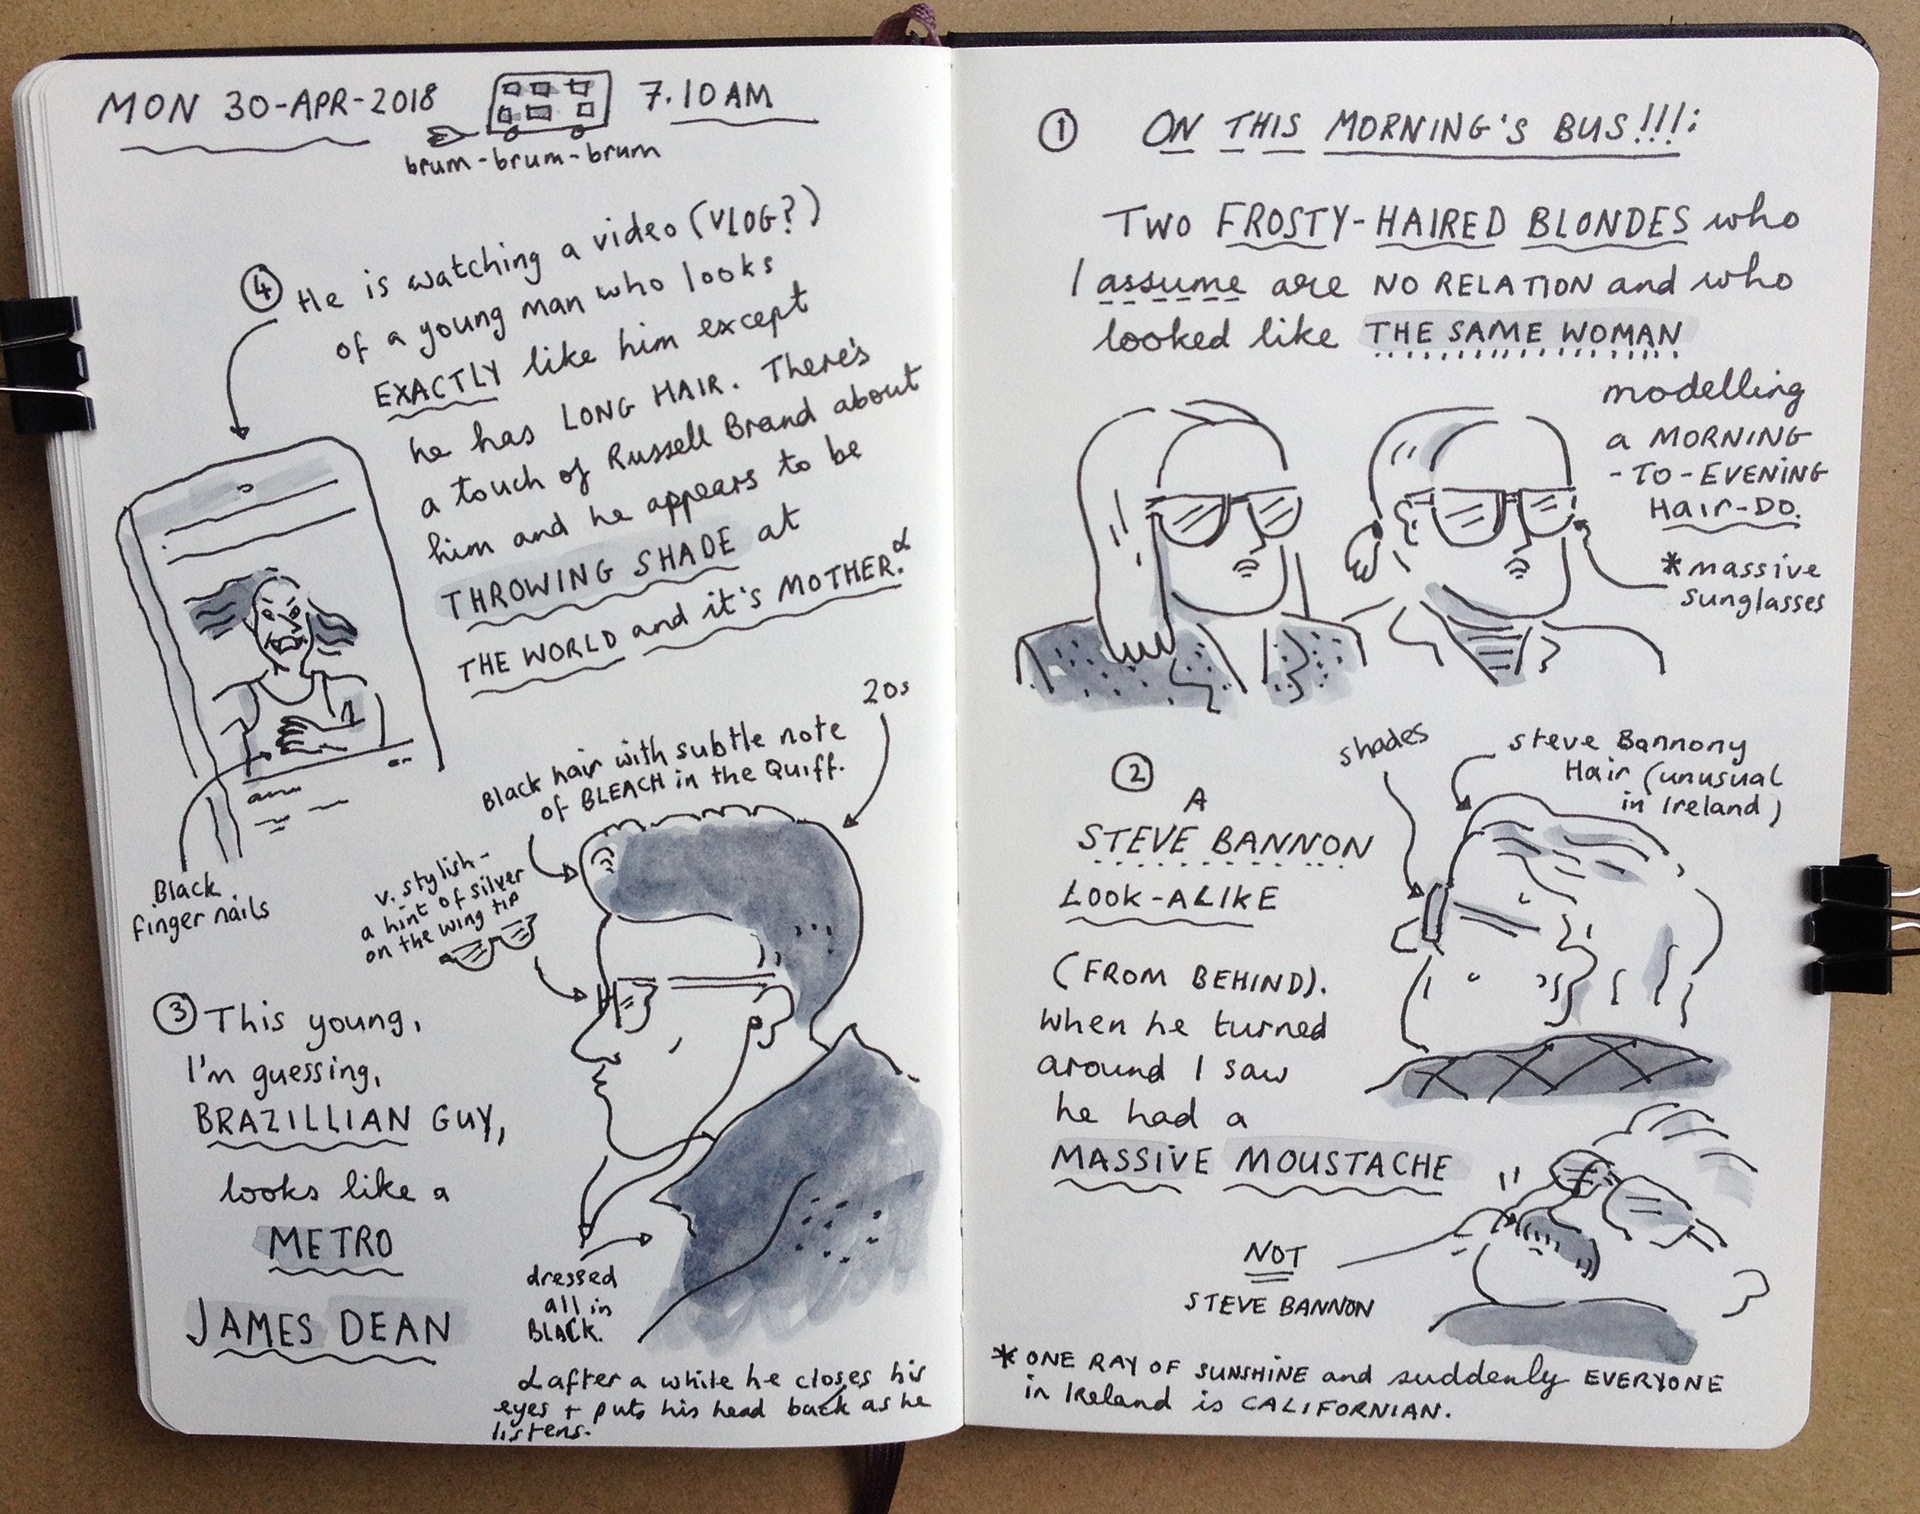 MON 30-APR-2018
7.10AM
brum-brum-brum
④ He is watching a video (VLOG?)
of a young man who looks
EXACTLY like him except
he has LONG HAIR. There's
a touch of Russell Brand about
him and he appears to be
THROWING SHADE at
THE WORLD and it's MOTHER.α
Black
finger nails
20s
Black hair with subtle note
of BLEACH in the Quiff.
v. stylish -
a hint of silver
on the wing tip
③ This young,
I'm guessing,
BRAZILLIAN GUY,
looks like a
METRO
JAMES DEAN
dressed
all in
BLACK.
α after a while he closes his
eyes + puts his head back as he
listens.
① ON THIS MORNING'S BUS!!!:
TWO FROSTY-HAIRED BLONDES who
I assume are NO RELATION and who
looked like THE SAME WOMAN
modelling
a MORNING
-TO-EVENING
HAIR-DO.
*massive
sunglasses
②
A
STEVE BANNON
LOOK-ALIKE
(FROM BEHIND).
When he turned
around I saw
he had a
MASSIVE MOUSTACHE
shades
Steve Bannony
Hair (unusual
in Ireland)
NOT
STEVE BANNON
*ONE RAY OF SUNSHINE and suddenly EVERYONE
in Ireland is CALIFORNIAN.